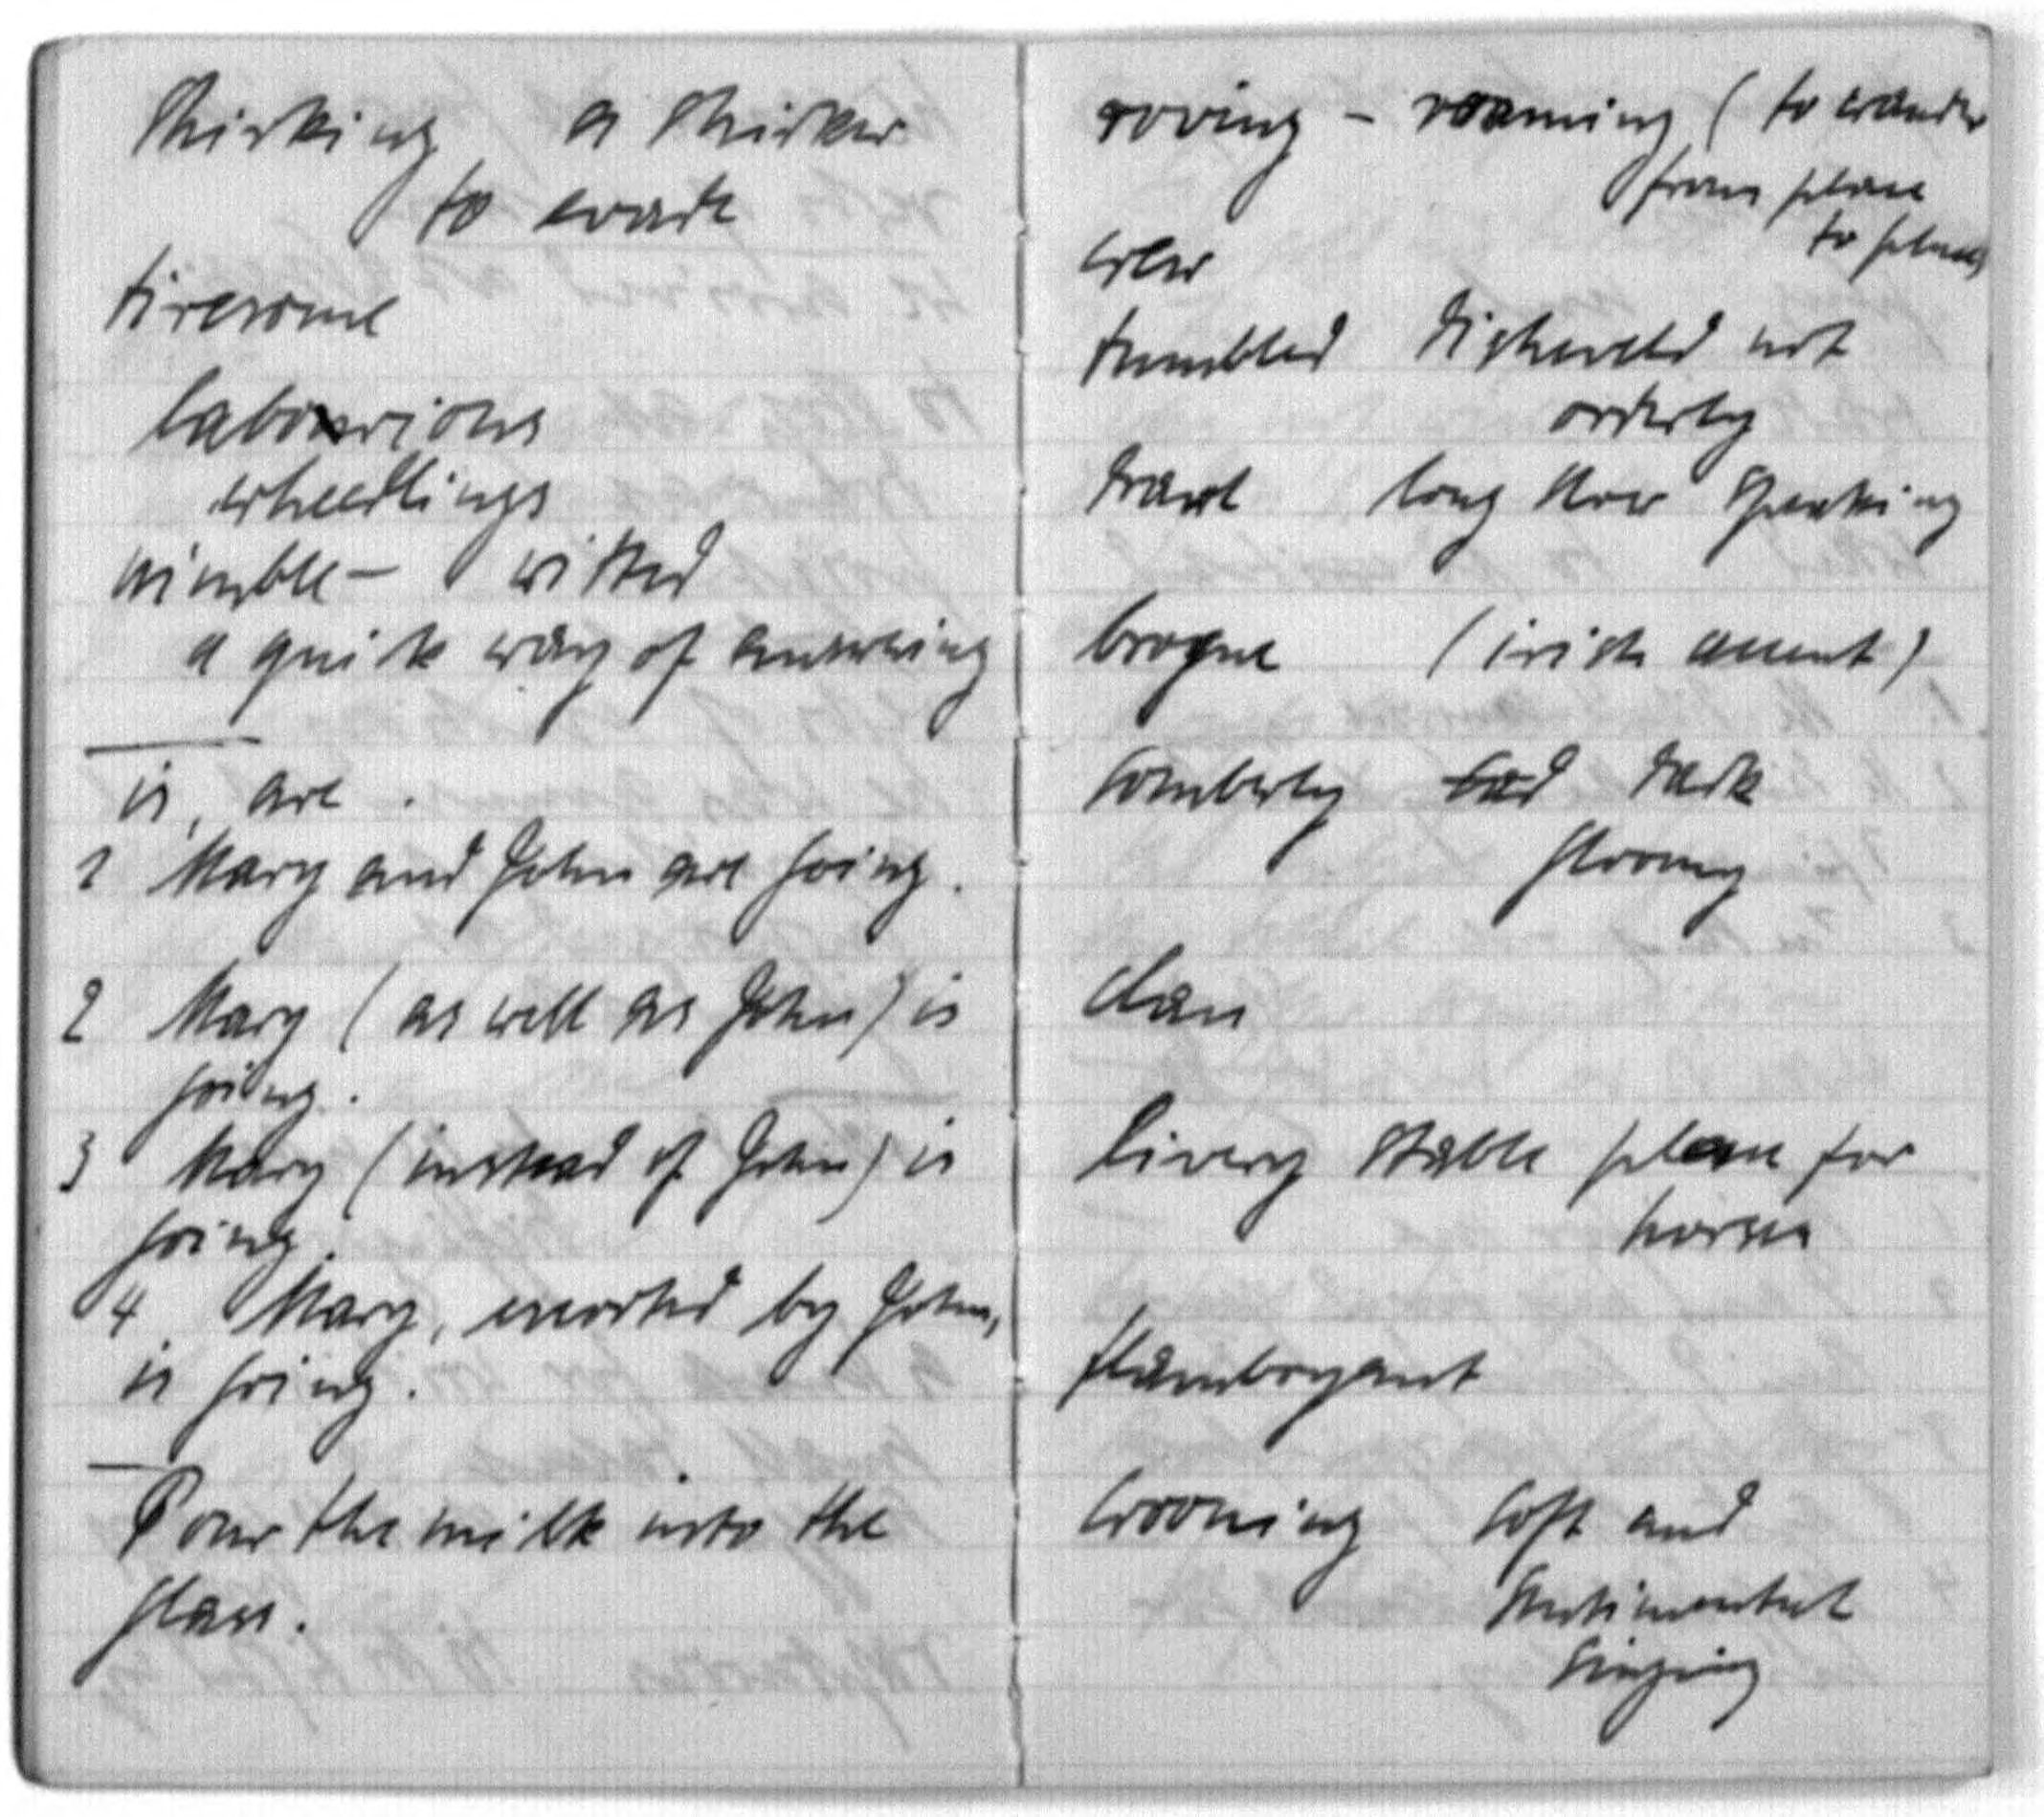 thinking a thinker
to evade
tiresome
laborious
wheedlings
nimble - witted
a quik way of answering
is, are.
1 Mary and John are going.
2 Mary (as well as John) is
going.
3 Mary (instead of John) is
going.
4. Mary, escorted by John,
is going.
Pour the milk into the
glass.
roving - roaming (to wander
from place
to place)
tumbled disheveled not
orderly
drawl long slow speaking
brogue (irish accent)
somberly sad dark
gloomy
clan
livery stable place for
horses
flamboyant
crooning soft and
sentimental
singing